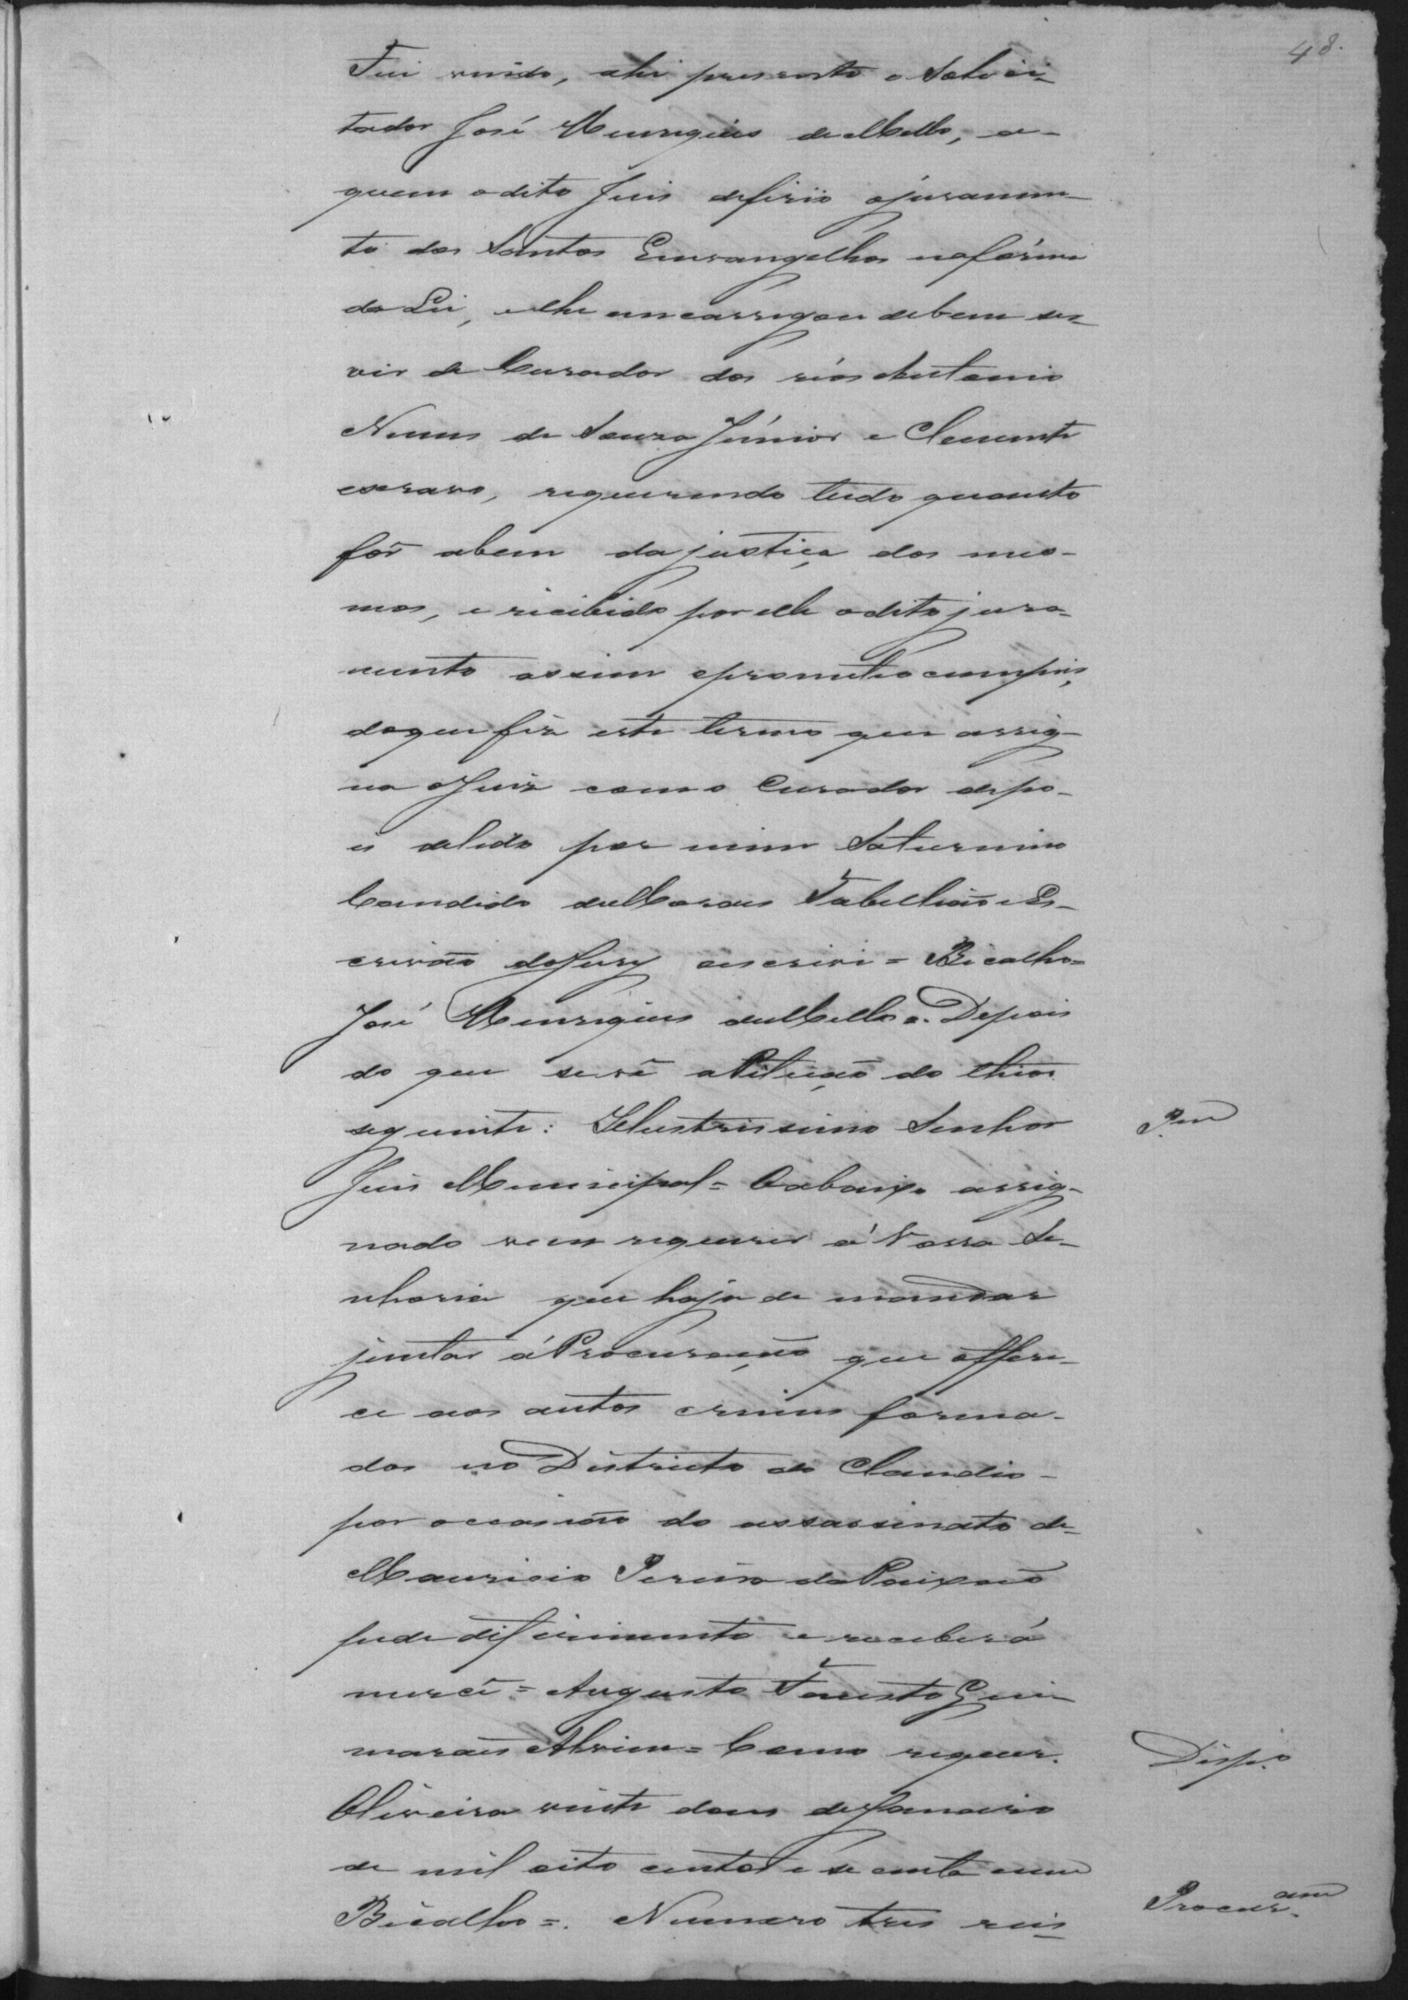 48.
Fui vindo, ahi presente o Solici-
tador José Remigius de Mello, a-
quem o dito Juis deferio o juramen-
to dos Santos Euvangelhos na fórma
da Lei, e lhe encarregou de bem ser-
vir de Curador dos réos Antonio
Nunes de Souza Júnior e Clemente
escravo, requerendo tudo quanto
fôr abem da justiça dos mes-
mos, e recibido por elle o dito jura-
mento assim o prometeo cumprir,
do que fiz este termo que assig-
na o Juiz com o Curador depo-
is de lido por mim Saturnino
Candido de Moraes Tabellião e Es-
crivão do Jury o escrivi = Bicalho =
José Remigius de Mello =. Depois
do que se vê a Petição do theor
seguinte: Illustrissimo Senhor
P.am
Juis Municipal = O abaixo assig-
nado vem requerer á Vossa Se-
nhoria que haja de mandar
juntar á Procuração que offere-
ce aos autos crimes forma-
dos no Districto do Claudio -
por occasião do assassinato de
Mauricio Pereira da Paixão
pede diferimento e receberá
mercê = Augusto Fausto Gui
marães Alvim = Como requer.
Desp.o
Oliveira vinte dous de Janeiro
de mil oito centos e secenta e um
Bicalho =. Numero tres reis
Procur.am